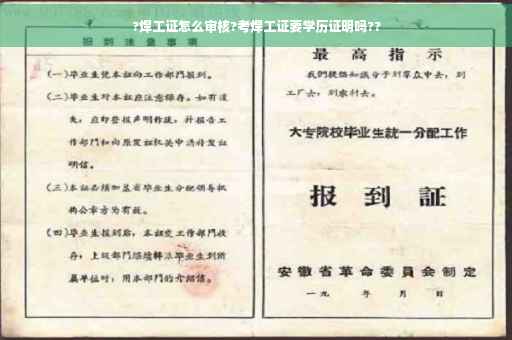 ?焊工证怎么审核?考焊工证要学历证明吗??
报到注意事项
(一)毕业生凭本证向工作部门报到。
(二)毕业生对本证应注意保存。如有遗
失,应即登报声明作废,并报告工
作部门和向原发证机关申请补发证
明信。
(三)本证必须加盖省毕业生分配领导机
构公章方为有效。
(四)毕业生报到后,本证交工作部门收
存,上级部门继续转派毕业生到所
属单位时,用本部门的介绍信。
最高指示
我们提倡知识分子到群众中去,到
工厂去,到农村去。
大专院校毕业生統一分配工作
报到証
安徽省革命委員会制定
一九 年 月 日